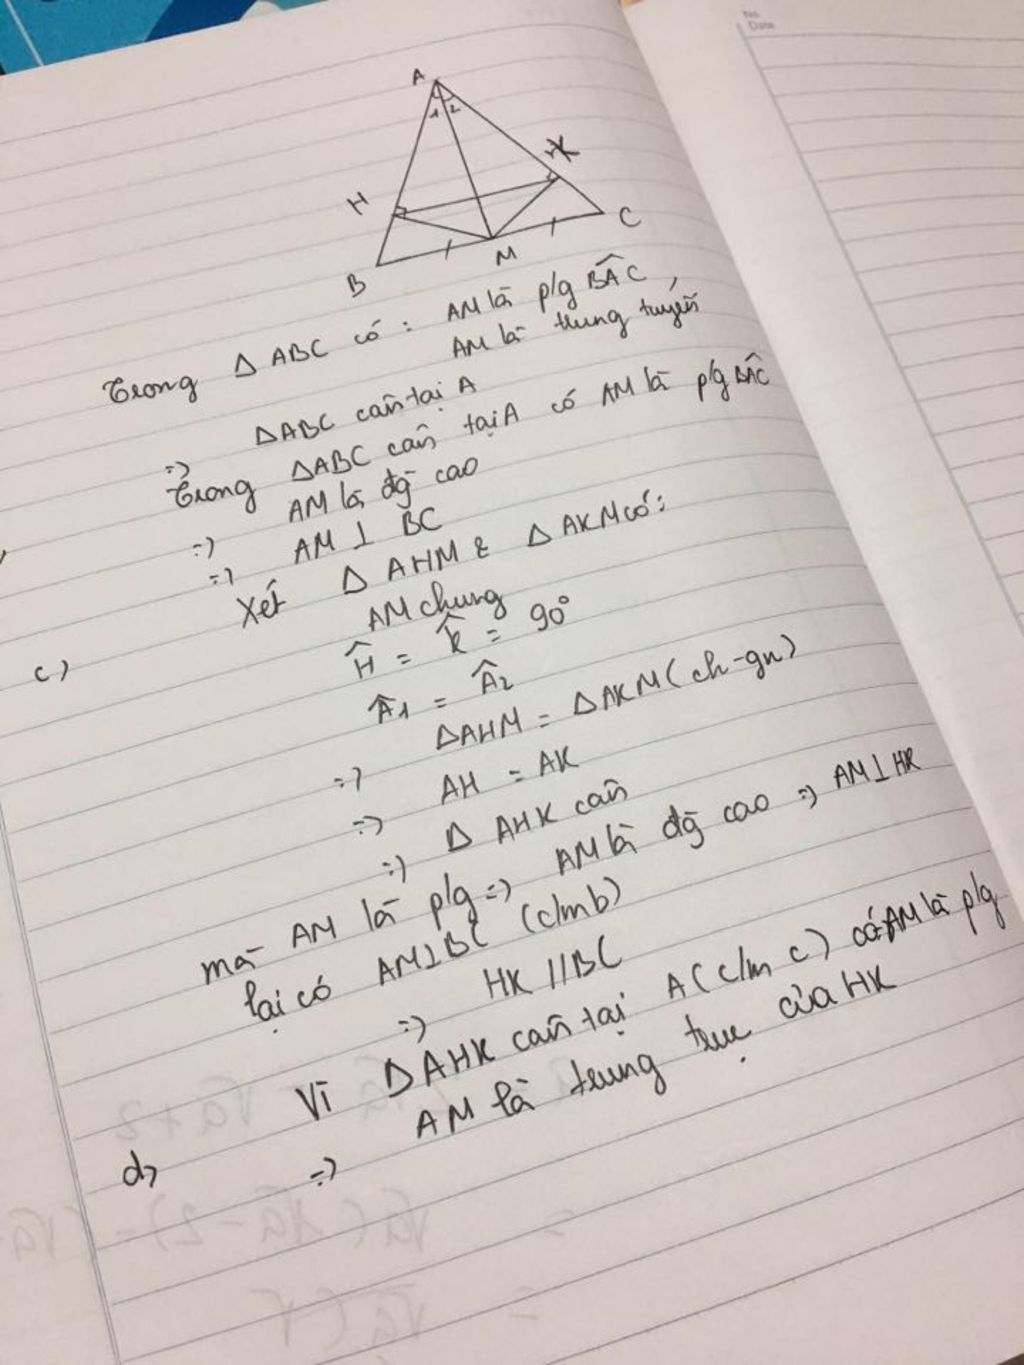 No.
Date
A
1 2
H
K
B
M
C
Trong Δ ABC có : AM là p/g BÂC ,
AM là trung tuyến
=> ΔABC cân tại A
Trong ΔABC cân tại A có AM là p/g BÂC
=> AM là đg cao
=> AM ⊥ BC
c) Xét Δ AHM & Δ AKM có:
AM chung
Ĥ = K̂ = 90°
Â1 = Â2
=> ΔAHM = ΔAKM (ch-gn)
=> AH = AK
=> Δ AHK cân
mà AM là p/g => AM là đg cao => AM⊥HK
lại có AM⊥BC (c/m b)
=> HK // BC
d) Vì ΔAHK cân tại A (c/m c) có AM là p/g
=> AM là trung trực của HK